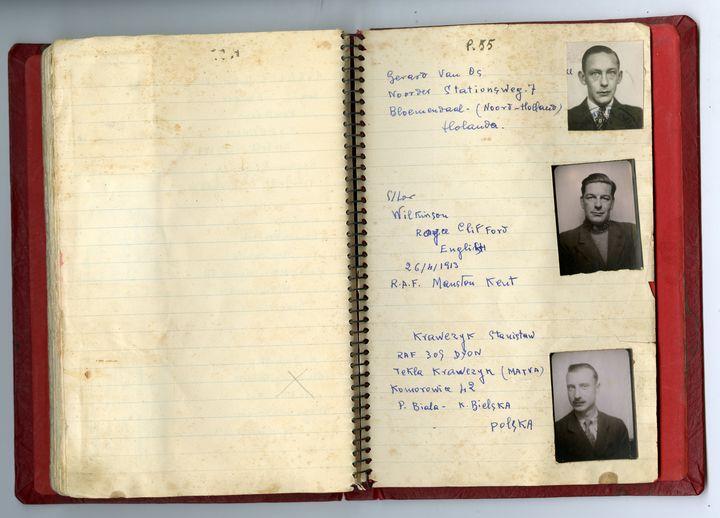 P.55
Gerard Van Os
Noorder Stationsweg.7
Bloemendaal - (Noord-Holland)
Holanda.
S/Lor
Wilkinson
Royce Clifford
English
26/4/1913
R.A.F. Manston Kent
Krawczyk Stanisław
RAF 305 DYON
Tekla Krawczyk (MATKA)
Komorowice 42
P. Biala - K. Bielska
POLSKA